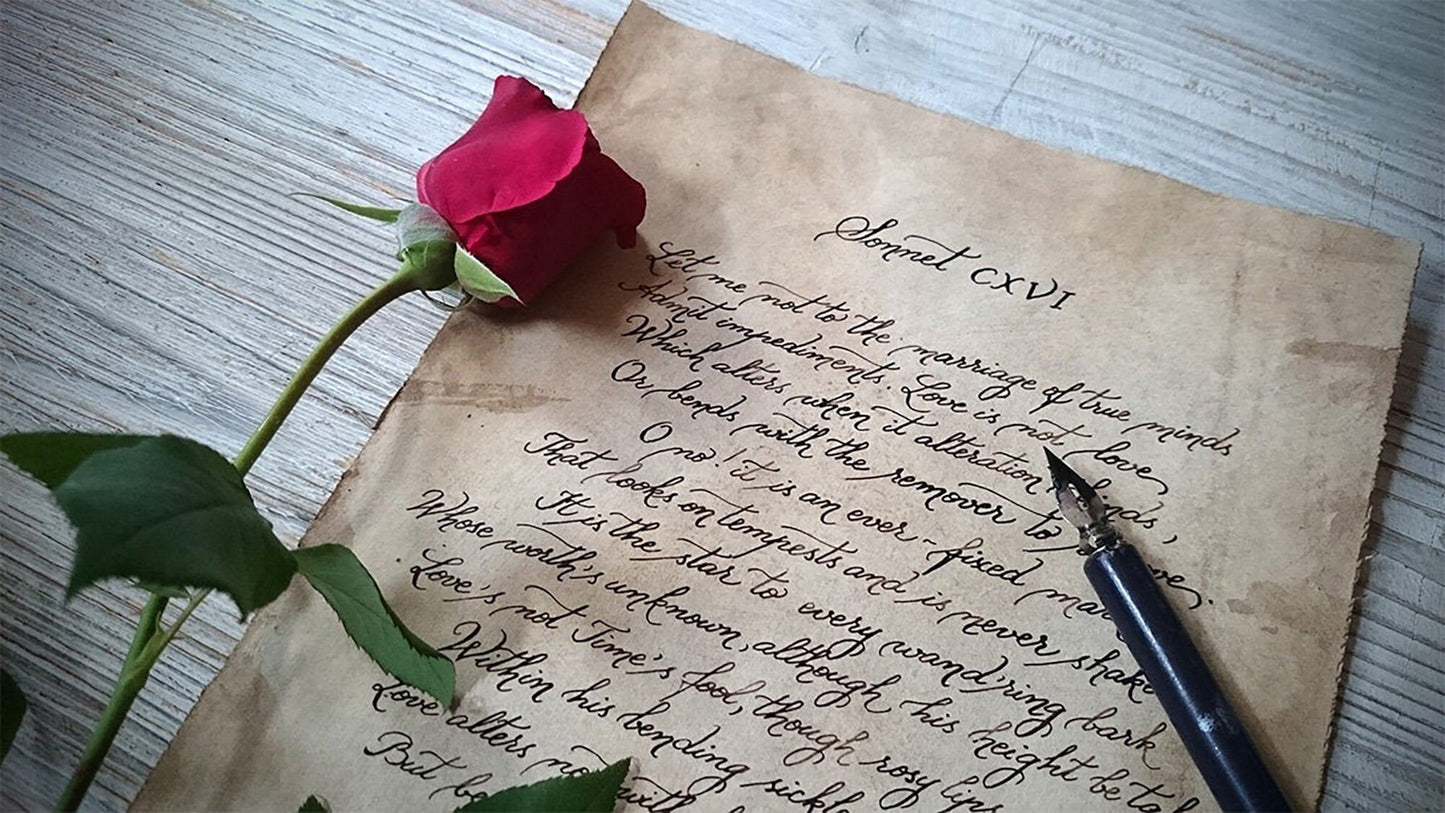 Sonnet CXVI
Let me not to the marriage of true minds
Admit impediments. Love is not love,
Which alters when it alteration finds,
Or bends with the remover to
O no! it is an ever-fixed
That looks on tempests and is never shake
It is the star to every wand'ring bark
Whose worth's unknown, although his height be
Love's not Time's fool, though rosy lips
Within his bending
Love alters not with
But